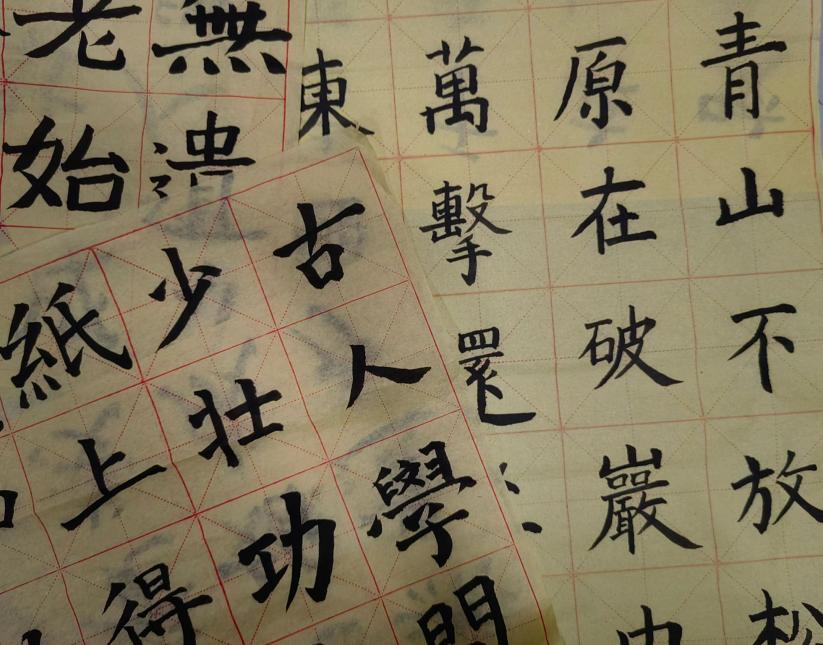 青山不放松
原在破巖中
萬擊還
東
古人學問
少壯功
紙上得
無遺
老始